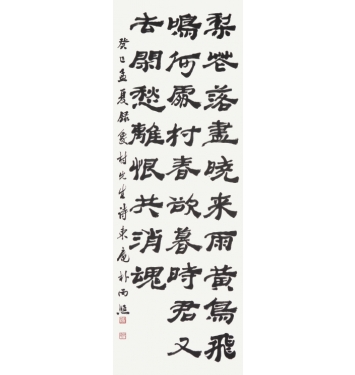 梨花落盡晓来雨黄鳥飛
鳴何處村春欲暮時君又
去閑愁離恨共消魂
癸巳孟夏錄愛村先生詩東庵朴雨熙